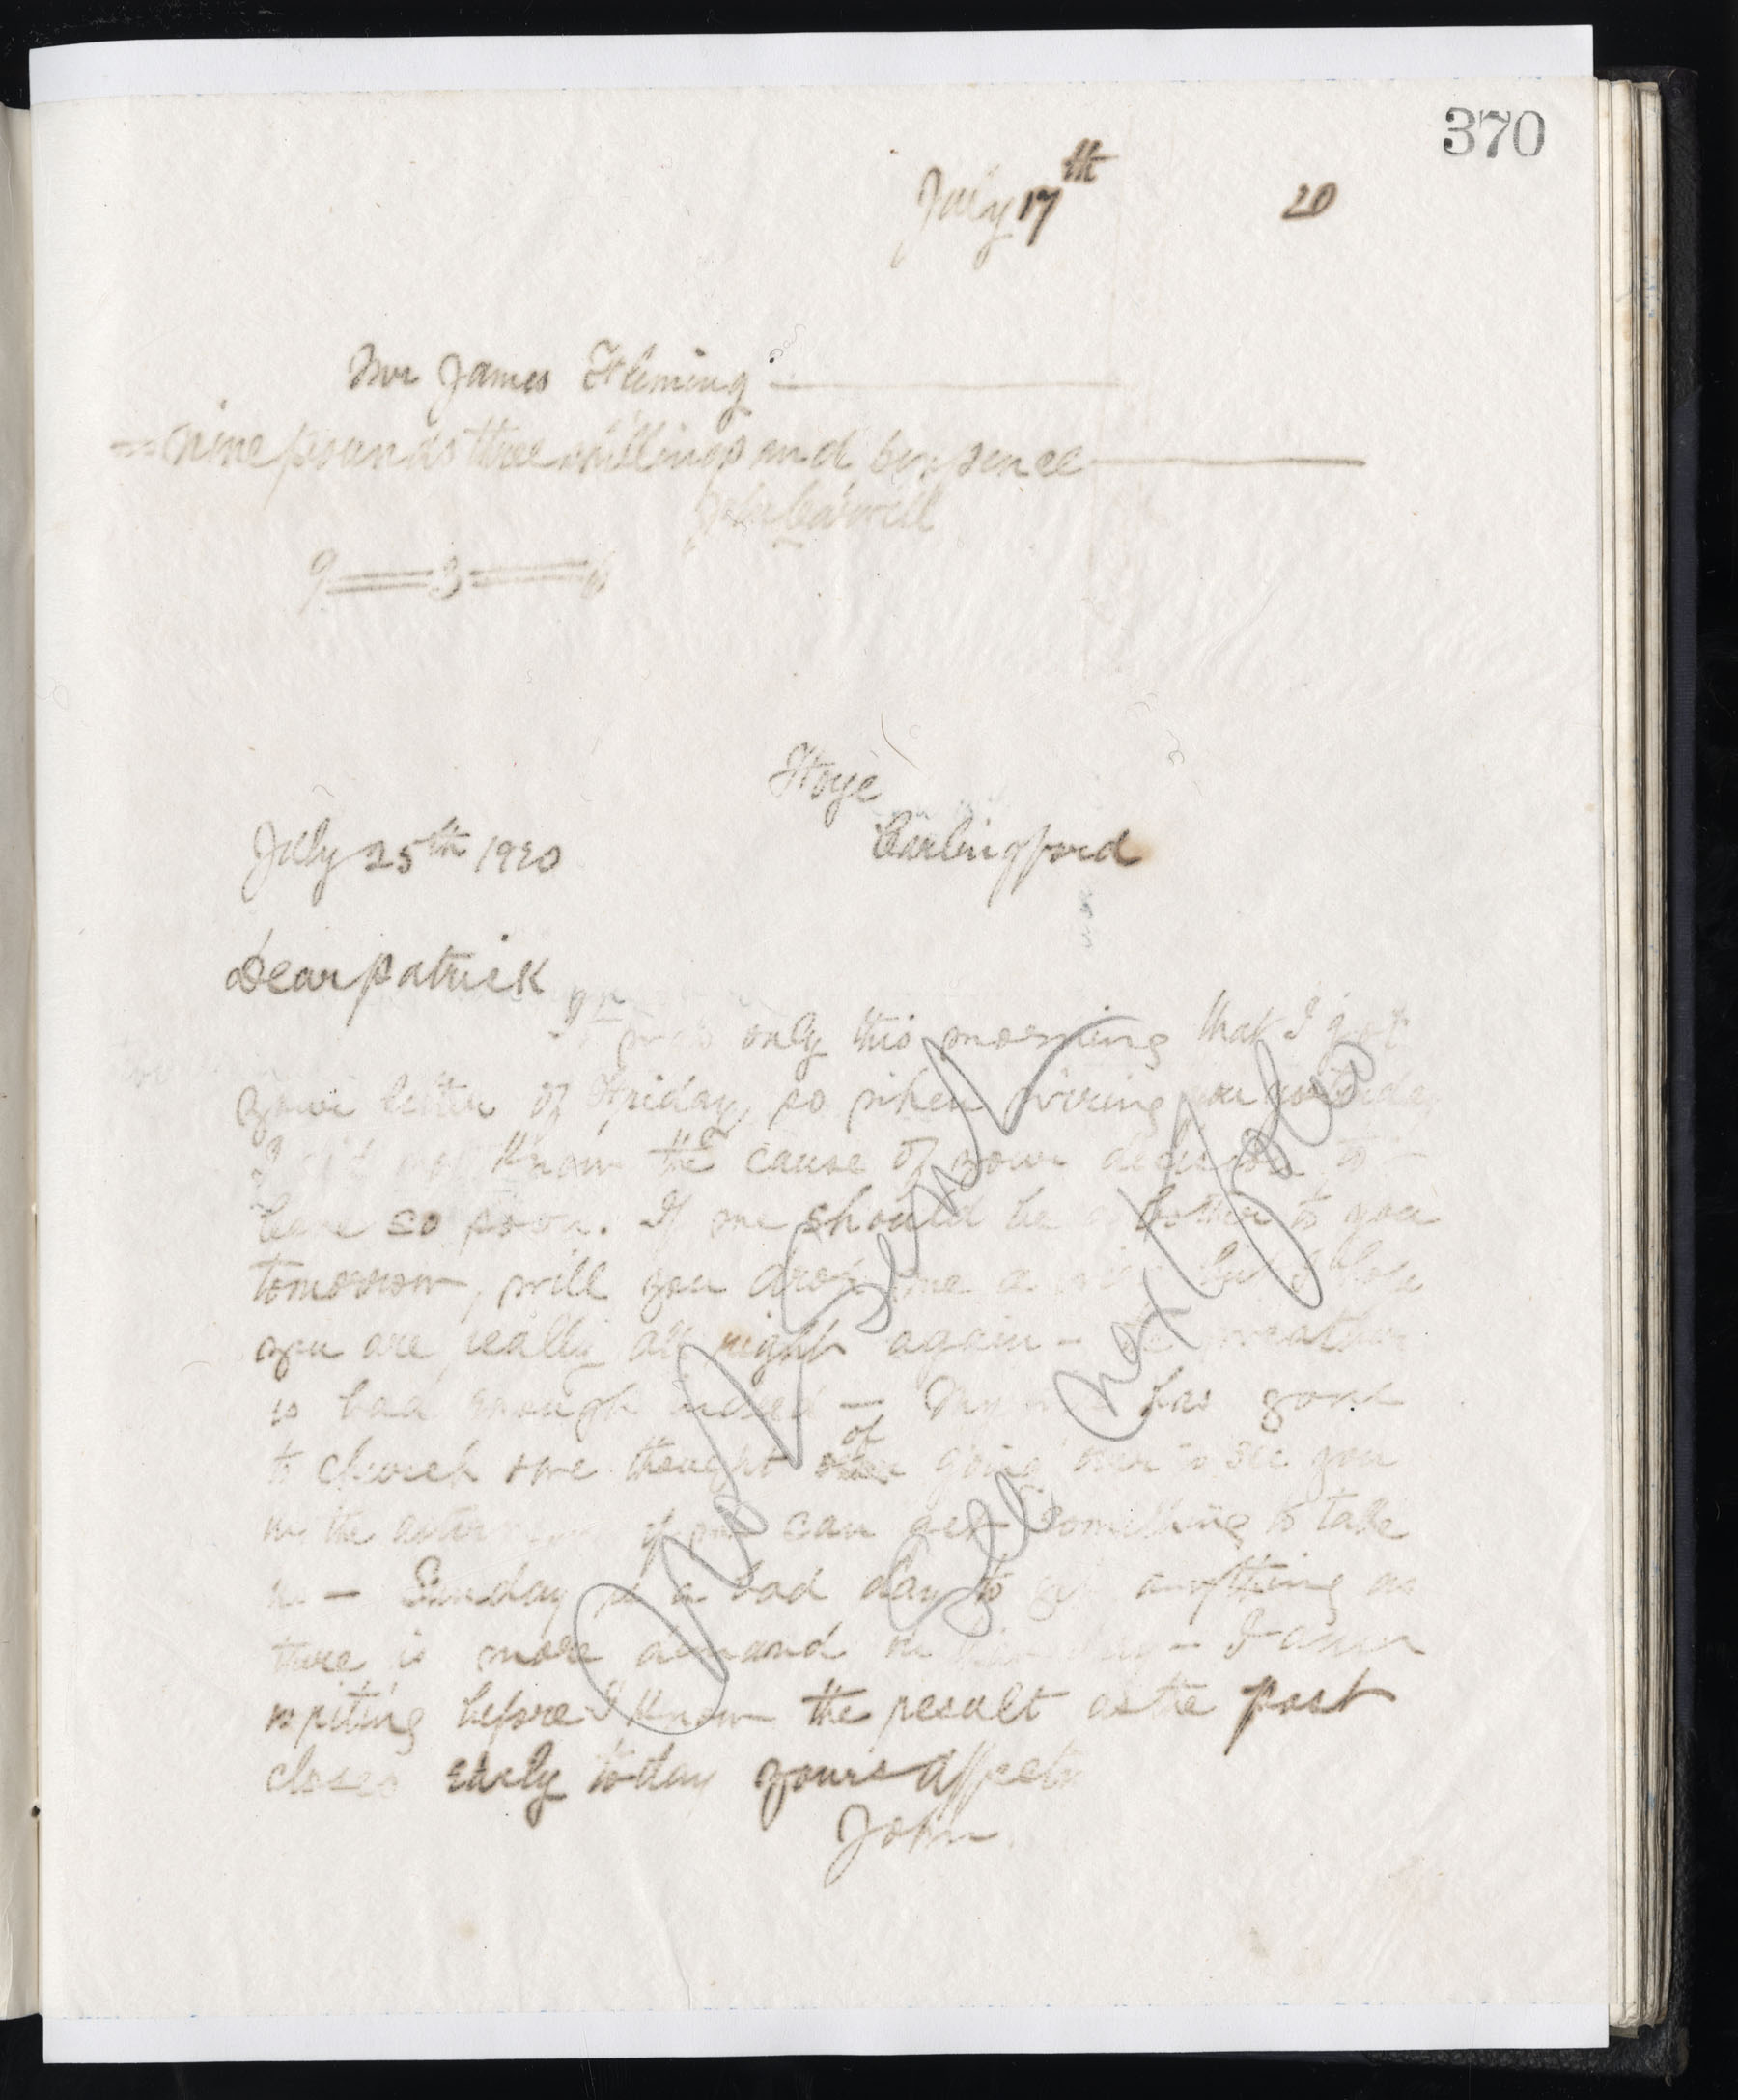 370
July 17th 20
Mr James Fleming
nine pounds three shillings and six pence
John
9 = 3 = 6
Carlingford
July 25th 1920
Dear Patrick
only this morning that I got
your letter of Friday, so when wiring you yesterday
I did not know the cause of your decision to
leave so soon. If one should be a bother to you
tomorrow, will you drop me a but I hope
you are really all right again - the weather
is bad enough indeed - My has gone
to church & we thought of going over to see you
in the afternoon if we can get something to take
us - Sunday is a bad day to get anything as
there is more demand on - I am
writing before I know the result as the post
closes early to day yours affect
John
Not Sent
See next folio